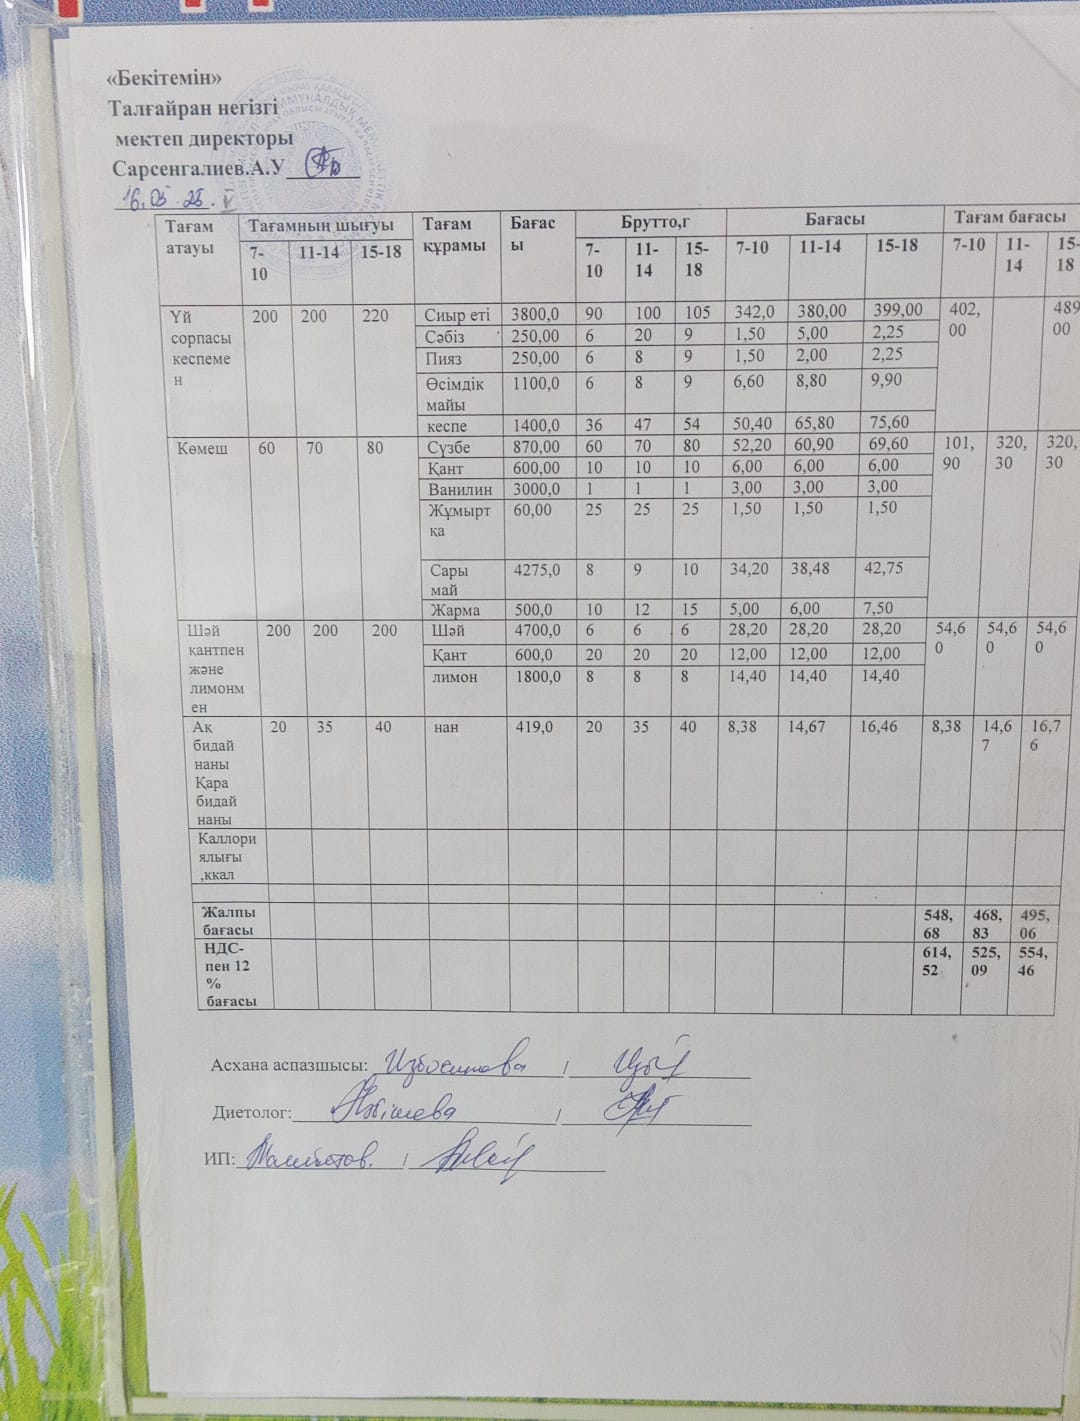 «Бекітемін»
Талғайран негізгі
мектеп директоры
Сарсенгалиев.А.У
16.05.25.
Тағам атауы Тағамның шығуы Тағам құрамы Бағасы Брутто,г Бағасы Тағам бағасы
7-10 11-14 15-18 7-10 11-14 15-18 7-10 11-14 15-18 7-10 11-14 15-18
Үй сорпасы кеспемен 200 200 220 Сиыр еті 3800,0 90 100 105 342,0 380,00 399,00 402,00 489 00
Сәбіз 250,00 6 20 9 1,50 5,00 2,25
Пияз 250,00 6 8 9 1,50 2,00 2,25
Өсімдік майы 1100,0 6 8 9 6,60 8,80 9,90
кеспе 1400,0 36 47 54 50,40 65,80 75,60
Көмеш 60 70 80 Сүзбе 870,00 60 70 80 52,20 60,90 69,60 101,90 320,30 320,30
Қант 600,00 10 10 10 6,00 6,00 6,00
Ванилин 3000,0 1 1 1 3,00 3,00 3,00
Жұмыртқа 60,00 25 25 25 1,50 1,50 1,50
Сары май 4275,0 8 9 10 34,20 38,48 42,75
Жарма 500,0 10 12 15 5,00 6,00 7,50
Шәй қантпен және лимонмен 200 200 200 Шәй 4700,0 6 6 6 28,20 28,20 28,20 54,60 54,60 54,60
Қант 600,0 20 20 20 12,00 12,00 12,00
лимон 1800,0 8 8 8 14,40 14,40 14,40
Ақ бидай наны Қара бидай наны 20 35 40 нан 419,0 20 35 40 8,38 14,67 16,46 8,38 14,67 16,76
Каллориялығы ,ккал
Жалпы бағасы 548,68 468,83 495,06
НДС-пен 12 % бағасы 614,52 525,09 554,46
Асхана аспазшысы:
Диетолог:
ИП: